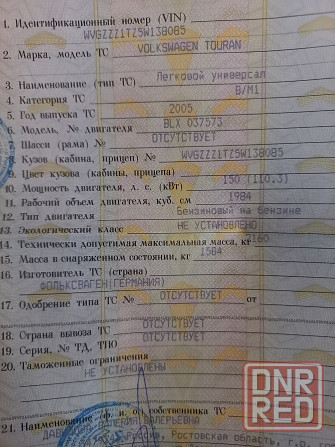 1. Идентификационный номер (VIN)
WVGZZZ1TZ5W138085
2. Марка, модель ТС VOLKSWAGEN TOURAN
3. Наименование (тип ТС) Легковой универсал
4. Категория ТС B/M1
5. Год выпуска ТС 2005
6. Модель, № двигателя BLX 037573
7. Шасси (рама) № ОТСУТСТВУЕТ
8. Кузов (кабина, прицеп) № WVGZZZ1TZ5W138085
9. Цвет кузова (кабины, прицепа)
10. Мощность двигателя, л. с. (кВт) 150 (110.3)
11. Рабочий объем двигателя, куб. см 1984
12. Тип двигателя Бензиновый на бензине
13. Экологический класс НЕ УСТАНОВЛЕНО
14. Технически допустимая максимальная масса, кг
15. Масса в снаряженном состоянии, кг 1584
16. Изготовитель ТС (страна)
ФОЛЬКСВАГЕН(ГЕРМАНИЯ)
17. Одобрение типа ТС № ОТСУТСТВУЕТ от
18. Страна вывоза ТС ОТСУТСТВУЕТ
19. Серия, № ТД, ТПО ОТСУТСТВУЕТ
20. Таможенные ограничения
НЕ УСТАНОВЛЕНЫ
21. Наименование собственника ТС
ВАЛЕРЬЕВНА
Россия, Ростовская область,
DNR
RED